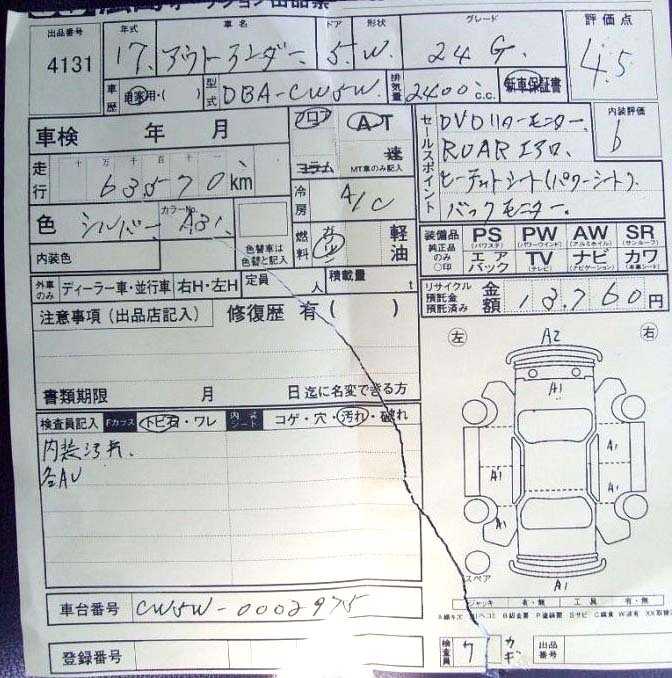 出品番号 年式 車名 ドア 形状 グレード 評価点
4131 17. アウトランダー. 5. W. 24 G. 4.5
車歴 自家用・( ) 型式 DBA-CW5W. 排気量 2400 c.c. 新車保証書
車検 年 月
フロア AT
コラム 速
MT車のみ記入
セールスポイント
内装評価
b
DVDリヤーモニター.
ROARエアロ.
ヒーテットシート(パワーシート).
バックモニター.
走行 十 万 千 百 十 一
63570 km
冷房 A/C
色 シルバー. カラーNo. A31.
色替車は
色替と記入
燃料 ガソリン 軽油
内装色
装備品
純正品
のみ
○印
PS (パワステ) PW (パワーウインド) AW (アルミホイル) SR (サンルーフ)
エアバック TV (テレビ) ナビ (ナビゲーション) カワ (本革シート)
外車のみ ディーラー車・並行車 右H・左H 定員 人 積載量 t
リサイクル
預託金
預託済み
金額 13,760円
注意事項(出品店記入) 修復歴 有( )
書類期限 月 日 迄に名変できる方
検査員記入 Fガラス トビ石・ワレ 内装シート コゲ・穴・汚れ・破れ
内装汚れ.
各AU
左 右
A2
A1
A1
A1
A1
A1
A1
スペア
ジャッキ 有・無 工具 有・無
車台番号 CW5W-0002975
登録番号
検査員 ワ カギ 出品番号